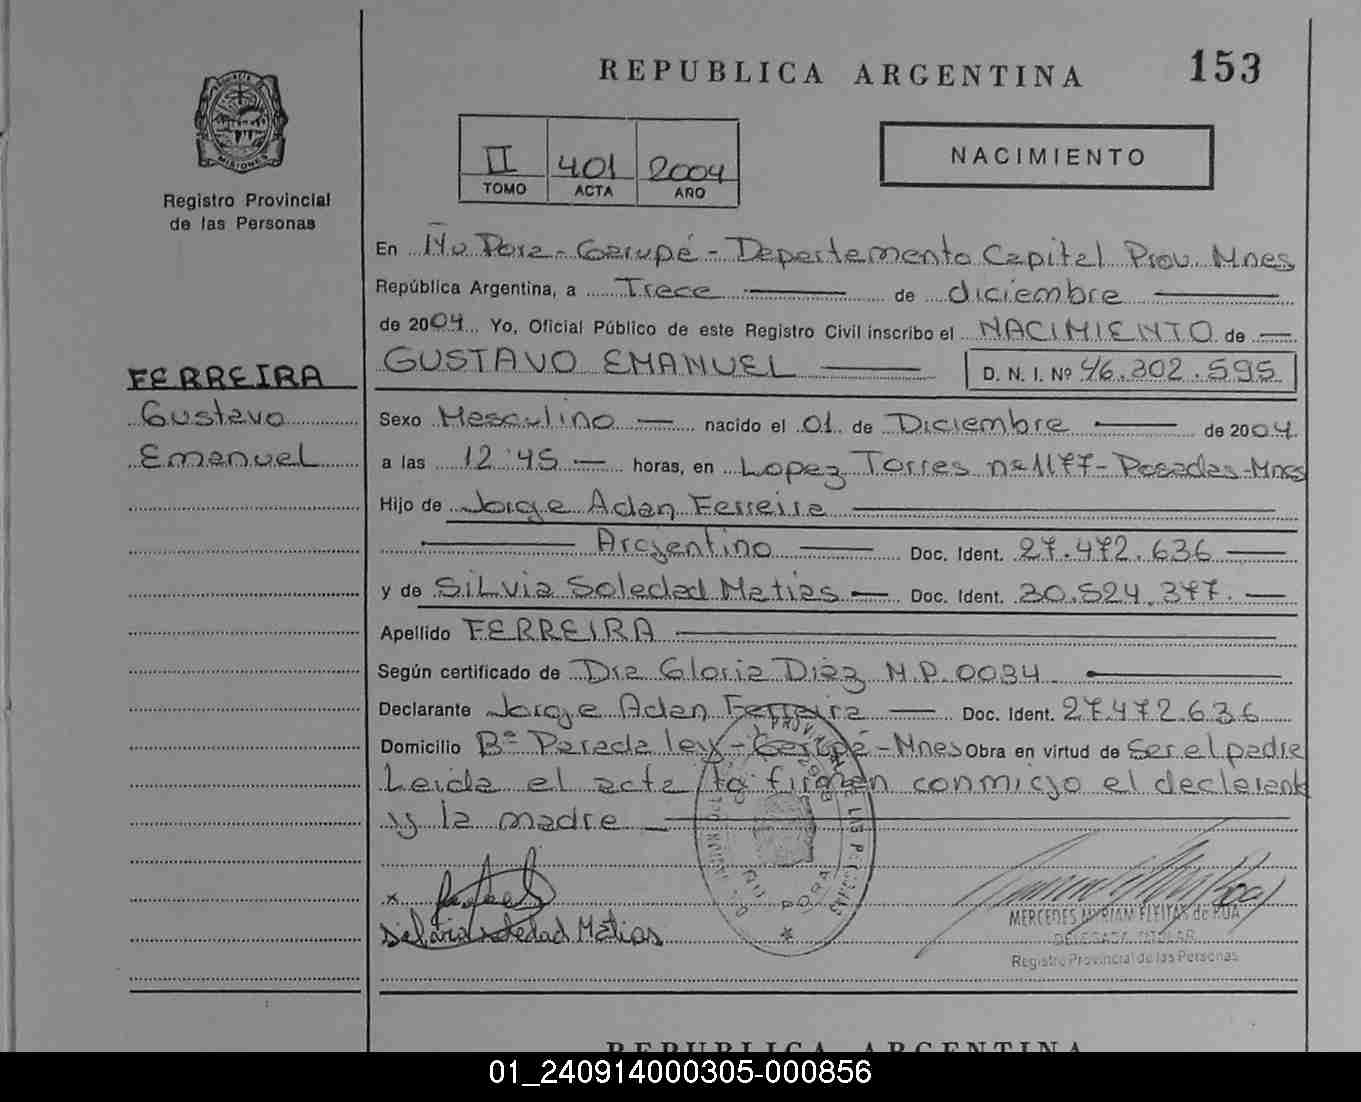 REPUBLICA ARGENTINA 153
PROVINCIA DE MISIONES
Registro Provincial
de las Personas
II 401 2004
TOMO ACTA AÑO
NACIMIENTO
En Ñu Pora - Garupá - Departamento Capital Prov. Mnes
República Argentina, a Trece de diciembre
de 2004 Yo, Oficial Público de este Registro Civil inscribo el NACIMIENTO de
GUSTAVO EMANUEL D. N. I. Nº 46.302.595
FERREIRA
Gustavo
Emanuel
Sexo Masculino nacido el 01 de Diciembre de 2004
a las 12:45 horas, en Lopez Torres nº 1177 - Posadas - Mnes
Hijo de Jorge Adan Ferreira
Argentino Doc. Ident. 27.472.636
y de Silvia Soledad Matias Doc. Ident. 30.524.377.
Apellido FERREIRA
Según certificado de Dra Gloria Diéz M.P. 0034
Declarante Jorge Adan Ferreira Doc. Ident. 27.472.636
Domicilio Bº Parada ley - Garupá - Mnes Obra en virtud de Ser el padre
Leida el acta la firman conmigo el declarante
y la madre
x
Silvia Soledad Matias
ÑU PORA
MERCEDES MYRIAM FLEITAS de RUA
DELEGADA TITULAR
Registro Provincial de las Personas
REPUBLICA ARGENTINA
01_240914000305-000856